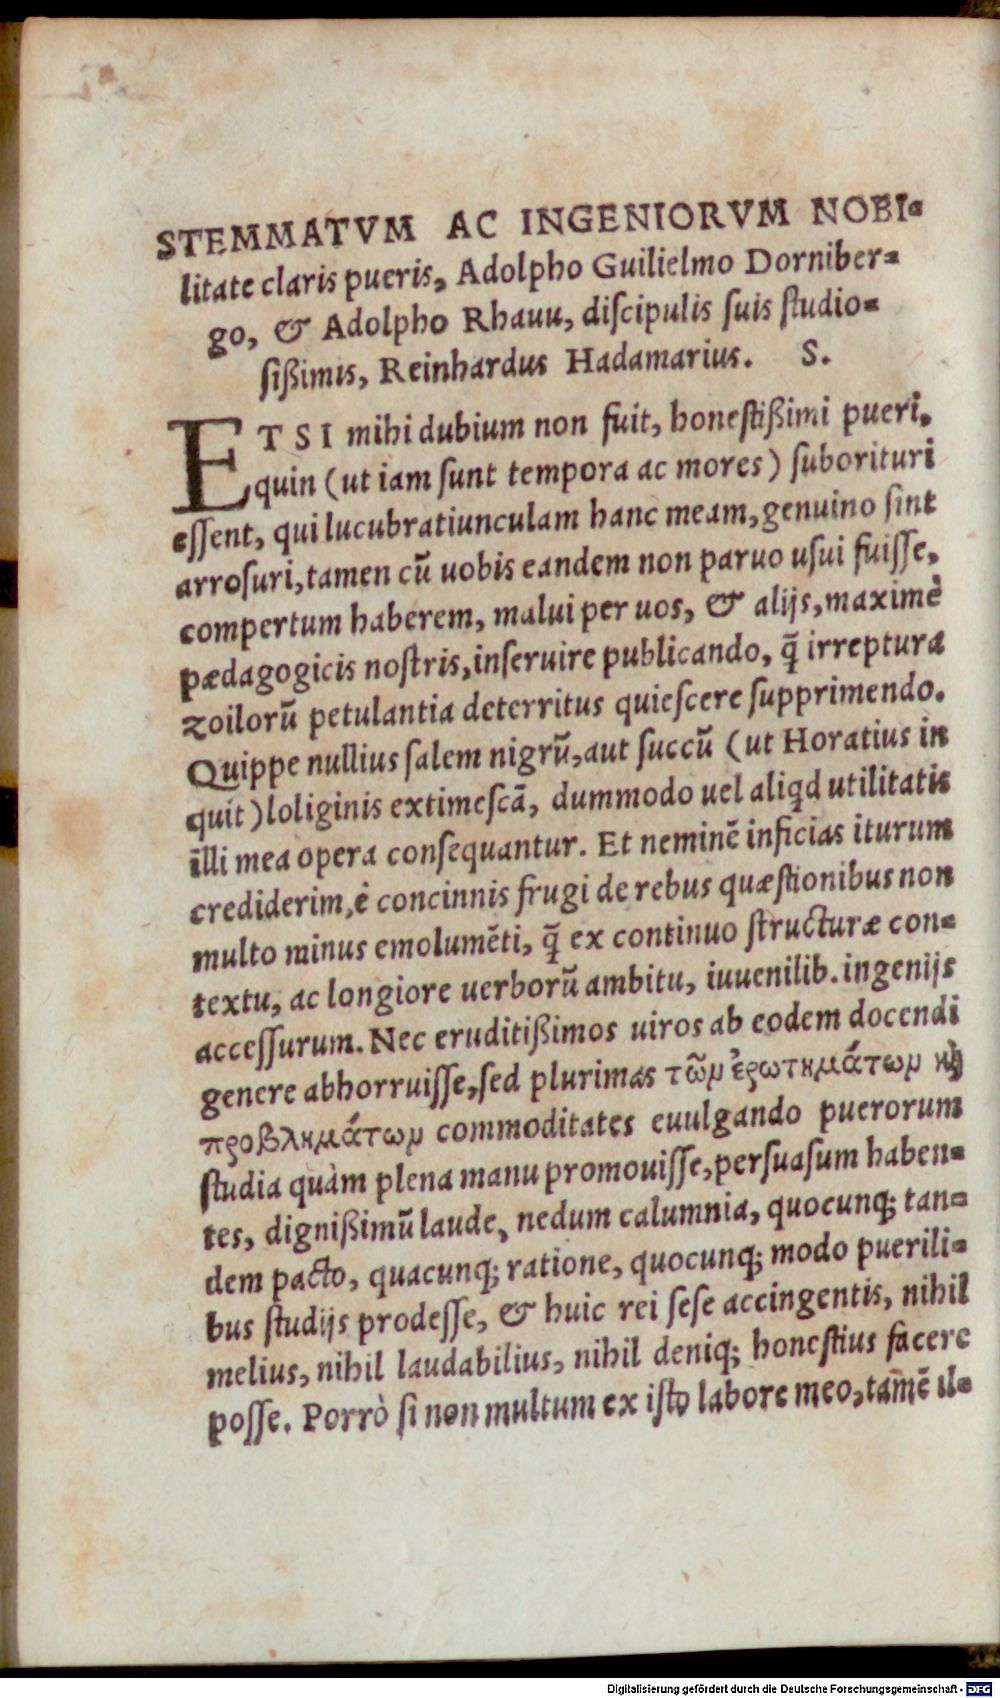 STEMMATVM AC INGENIORVM NOBI-
litate claris pueris, Adolpho Guilielmo Dorniber-
go, & Adolpho Rhauu, diſcipulis ſuis ſtudio-
ſißimis, Reinhardus Hadamarius. S.
ETSI mihi dubium non fuit, honeſtißimi pueri,
quin (ut iam ſunt tempora ac mores) ſuborituri
eſſent, qui lucubratiunculam hanc meam, genuino ſint
arroſuri, tamen cũ uobis eandem non paruo uſui fuiſſe,
compertum haberem, malui per uos, & alijs, maximè
pædagogicis noſtris, inſeruire publicando, q̃ irreptura
zoilorũ petulantia deterritus quieſcere ſupprimendo.
Quippe nullius ſalem nigrũ, aut ſuccũ (ut Horatius in
quit) loliginis extimeſcã, dummodo uel aliqd utilitatis
illi mea opera conſequantur. Et neminẽ inficias iturum
crediderim, è concinnis frugi de rebus quæſtionibus non
multo minus emolumẽti, q̃ ex continuo ſtructuræ con-
textu, ac longiore uerborũ ambitu, iuuenilib. ingenijs
acceſſurum. Nec eruditißimos uiros ab eodem docendi
genere abhorruiſſe, ſed plurimas τῶν ἐρωτημάτων καὶ
προβλημάτων commoditates euulgando puerorum
ſtudia quàm plena manu promouiſſe, perſuaſum haben-
tes, dignißimũ laude, nedum calumnia, quocunq; tan-
dem pacto, quacunq; ratione, quocunq; modo puerili-
bus ſtudijs prodeſſe, & huic rei ſeſe accingentis, nihil
melius, nihil laudabilius, nihil deniq; honeſtius facere
poſſe. Porrò ſi non multum ex iſto labore meo, tamẽ il-
Digitalisierung gefördert durch die Deutsche Forschungsgemeinschaft - DFG